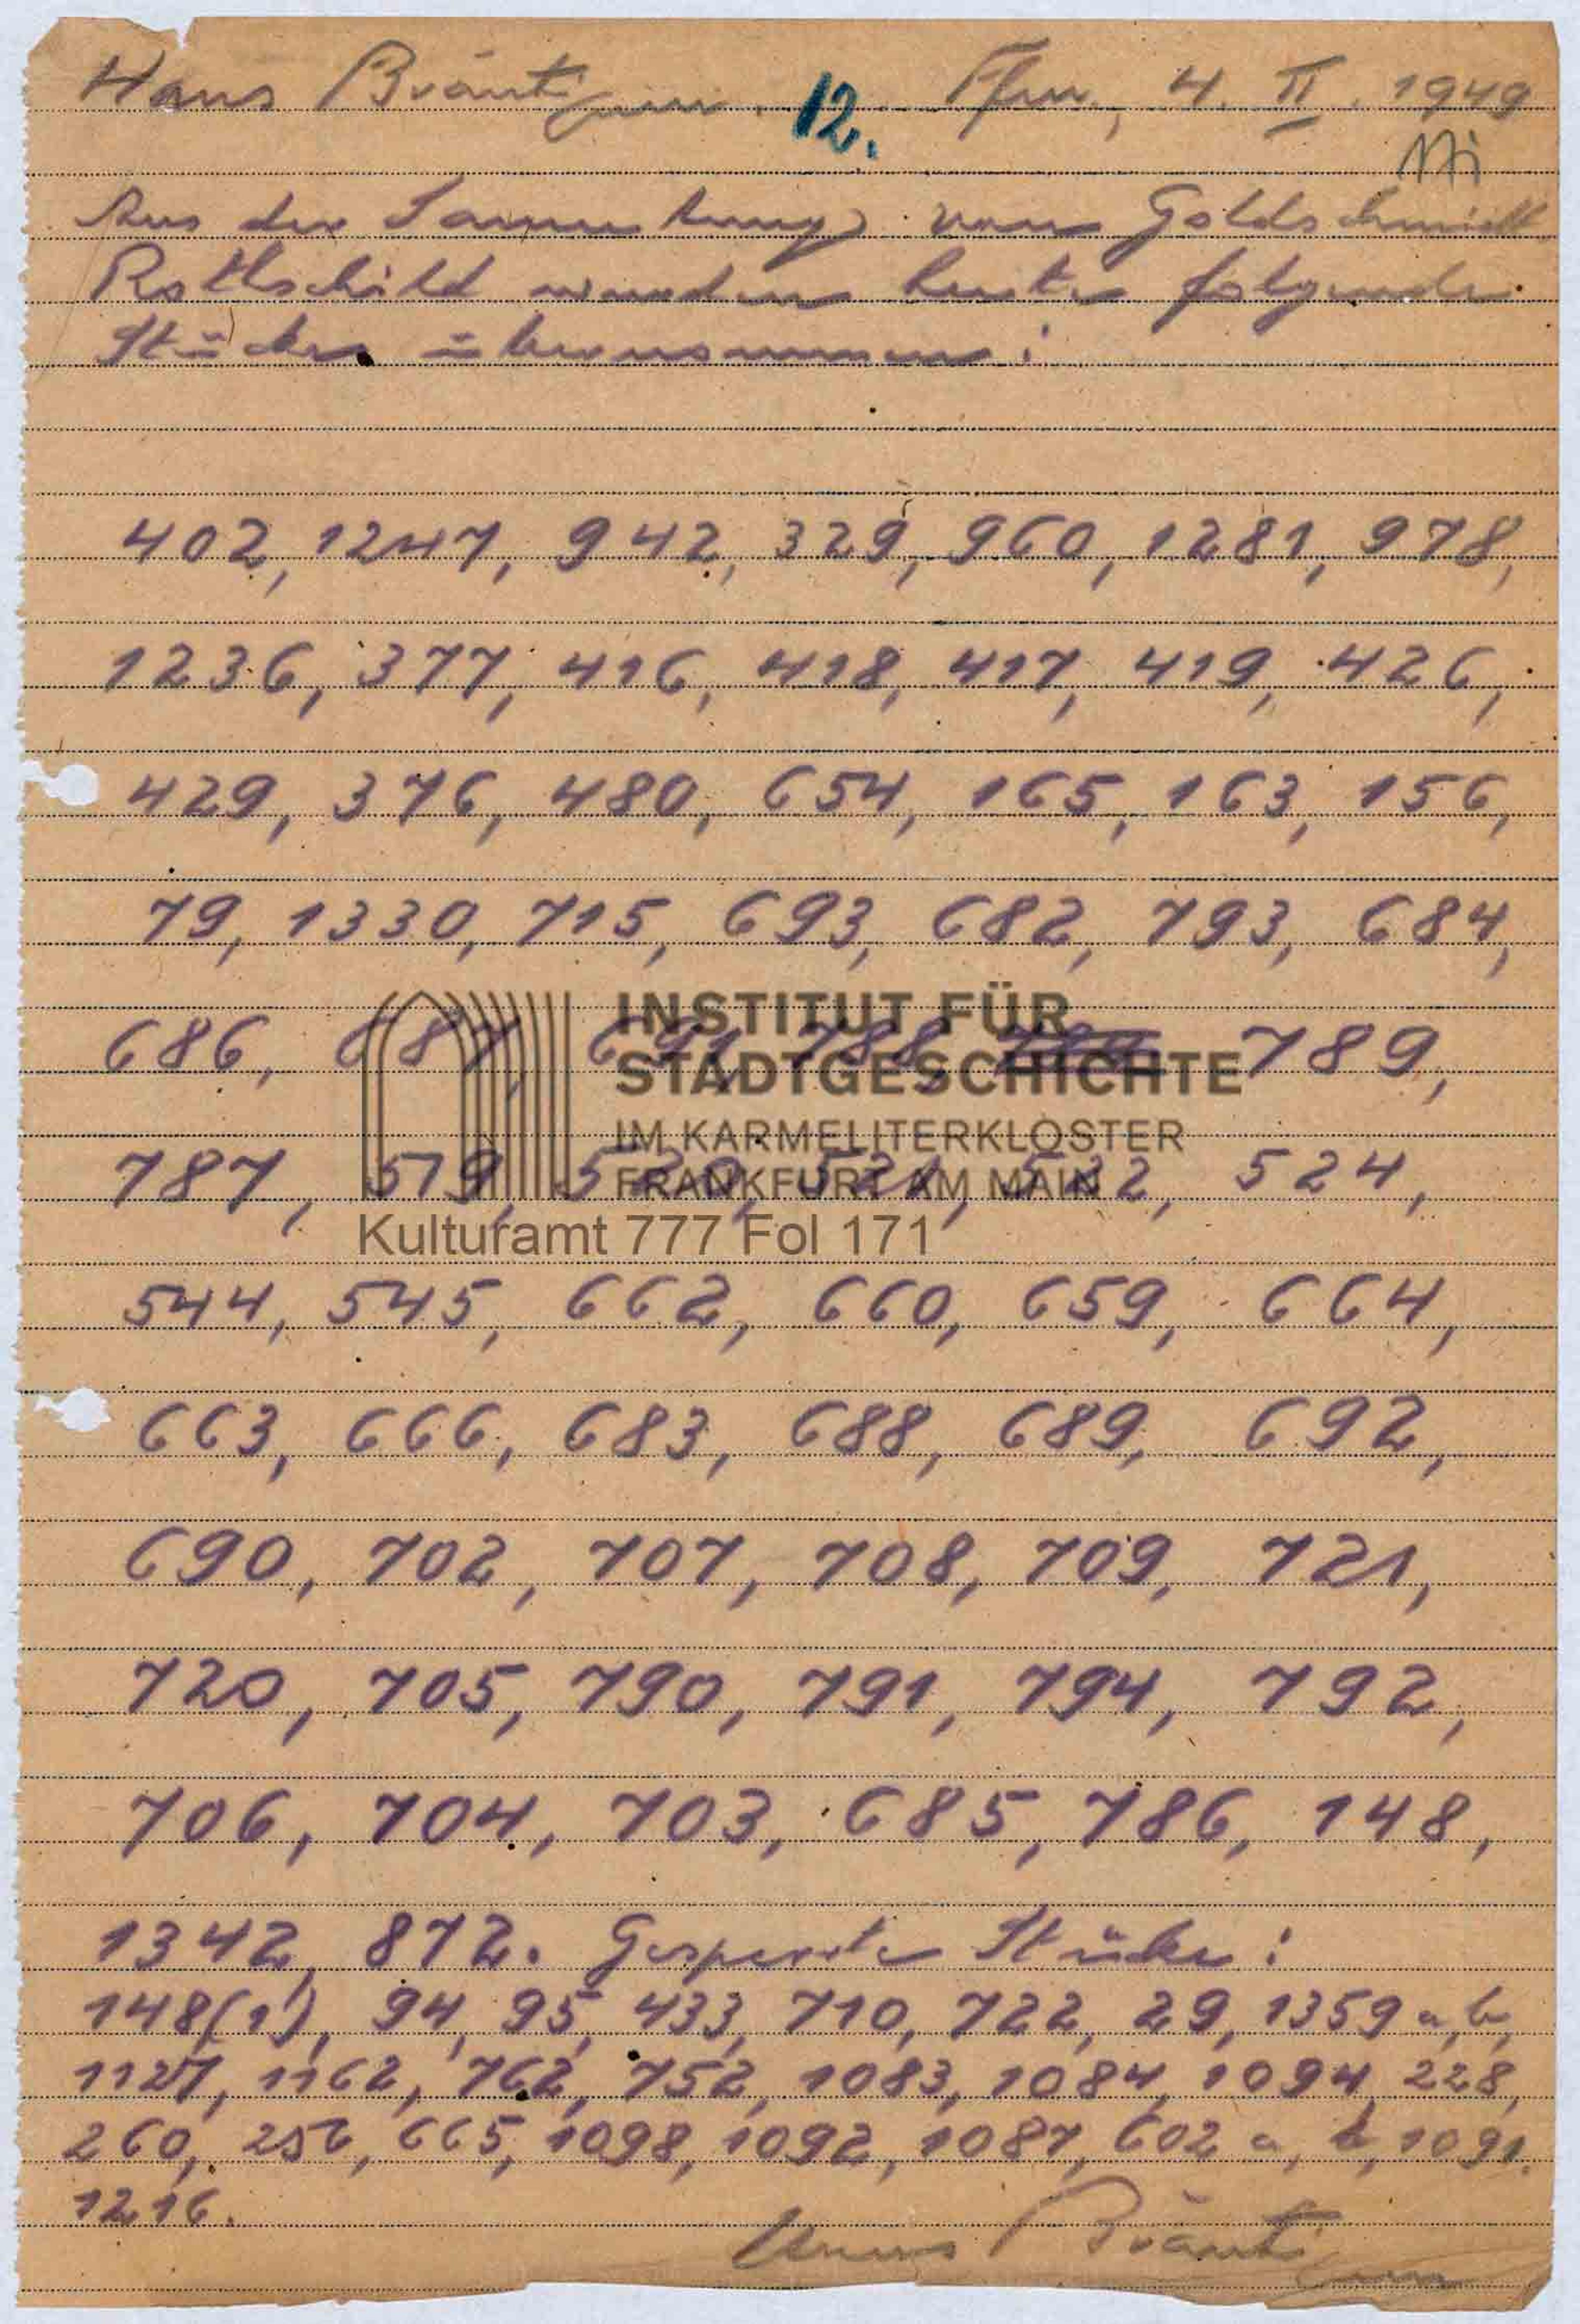 Hans Bräutigam. 12. Ffm., 4. II. 1949
Aus der Sammlung von Goldschmidt
Rothschild wurden heute folgende
Stücke übernommen:
402, 1247, 942, 329, 960, 1281, 978,
1236, 377, 416, 418, 417, 419, 426,
429, 376, 480, 654, 165, 163, 156,
79, 1330, 715, 693, 682, 793, 684,
686, 687, 691, 788, 789,
787, 519, 520, 521, 522, 524,
544, 545, 662, 660, 659, 664,
663, 666, 683, 688, 689, 692,
690, 702, 707, 708, 709, 721,
720, 705, 790, 791, 794, 792,
706, 704, 703, 685, 786, 148,
1342, 872. Gesperrte Stücke:
148(1), 94, 95, 433, 710, 722, 29, 1359 a, b,
1127, 1162, 762, 752, 1083, 1084, 1094, 228,
260, 256, 665, 1098, 1092, 1087, 602 a, b, 1091.
1216.
Hans Bräutigam
INSTITUT FÜR
STADTGESCHICHTE
IM KARMELITERKLOSTER
FRANKFURT AM MAIN
Kulturamt 777 Fol 171